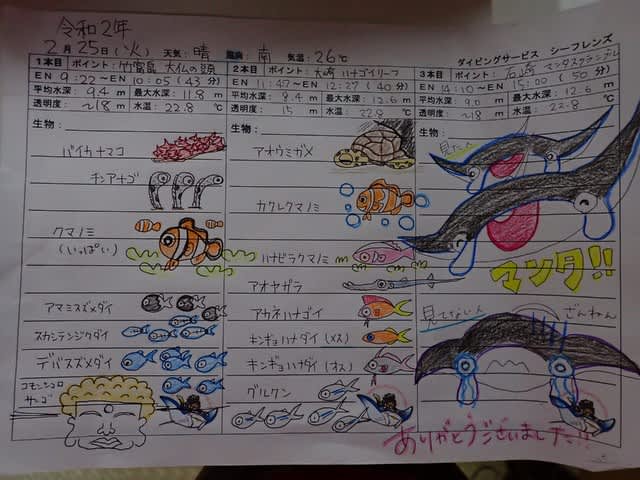 令和2年
2月25日(火) 天気:晴 風向:南 気温:26℃
ダイビングサービス シーフレンズ
1本目 ポイント:竹富島 大仏の頭
EN 9:22~EN 10:05 (43分)
平均水深:9.4m 最大水深:11.8m
透明度:~18m 水温:22.8℃
生物:
バイカナマコ
チンアナゴ
クマノミ
(いっぱい)
アマミスズメダイ
スカシテンジクダイ
デバスズメダイ
コモンシコロ
サンゴ
2本目 ポイント:大崎 ハナゴイリーフ
EN 11:47~EN 12:27 (40分)
平均水深:8.4m 最大水深:12.6m
透明度:15m 水温:22.8℃
生物:
アオウミガメ
カクレクマノミ
ハナビラクマノミ
アオヤガラ
アカネハナゴイ
キンギョハナダイ(メス)
キンギョハナダイ(オス)
グルクン
3本目 ポイント:石崎 マンタスクランブル
EN 14:10~EN 15:00 (50分)
平均水深:9.0m 最大水深:12.6m
透明度:~18m 水温:22.8℃
生物:
見た人
マンタ!!
見てない人 ざんねん
ありがとうございました!!